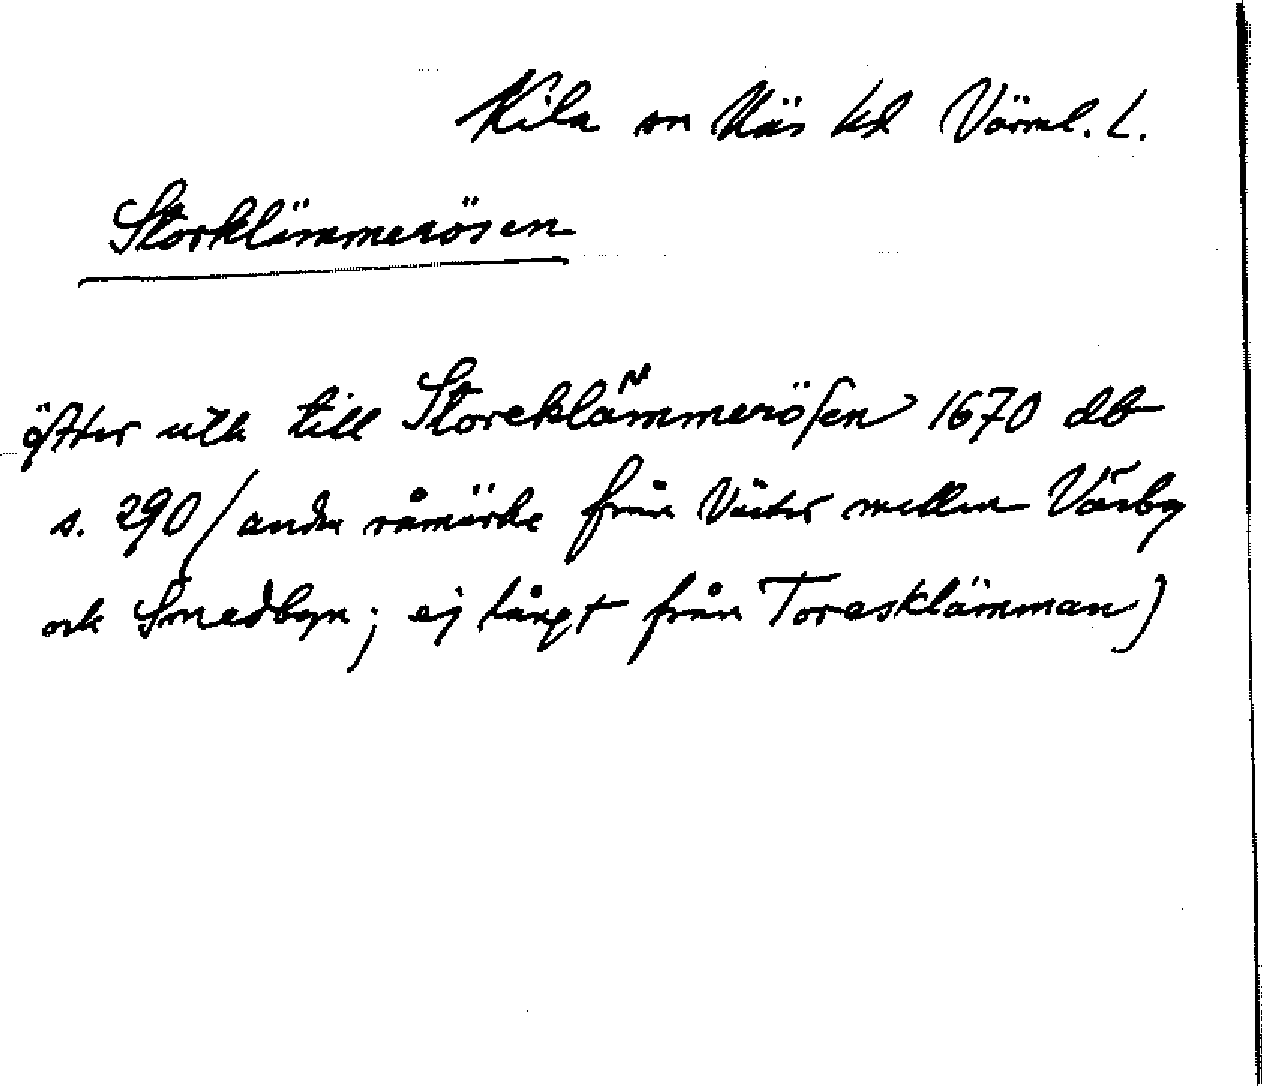 Kila sn Näs hd Värml. L.
Storklämmerösen
öfter utk till Storeklämmerösen 1670 db
s. 290 / andra råmärke från Väster mellan Värby
och Smedbyn; ej långt från Torasklämman)